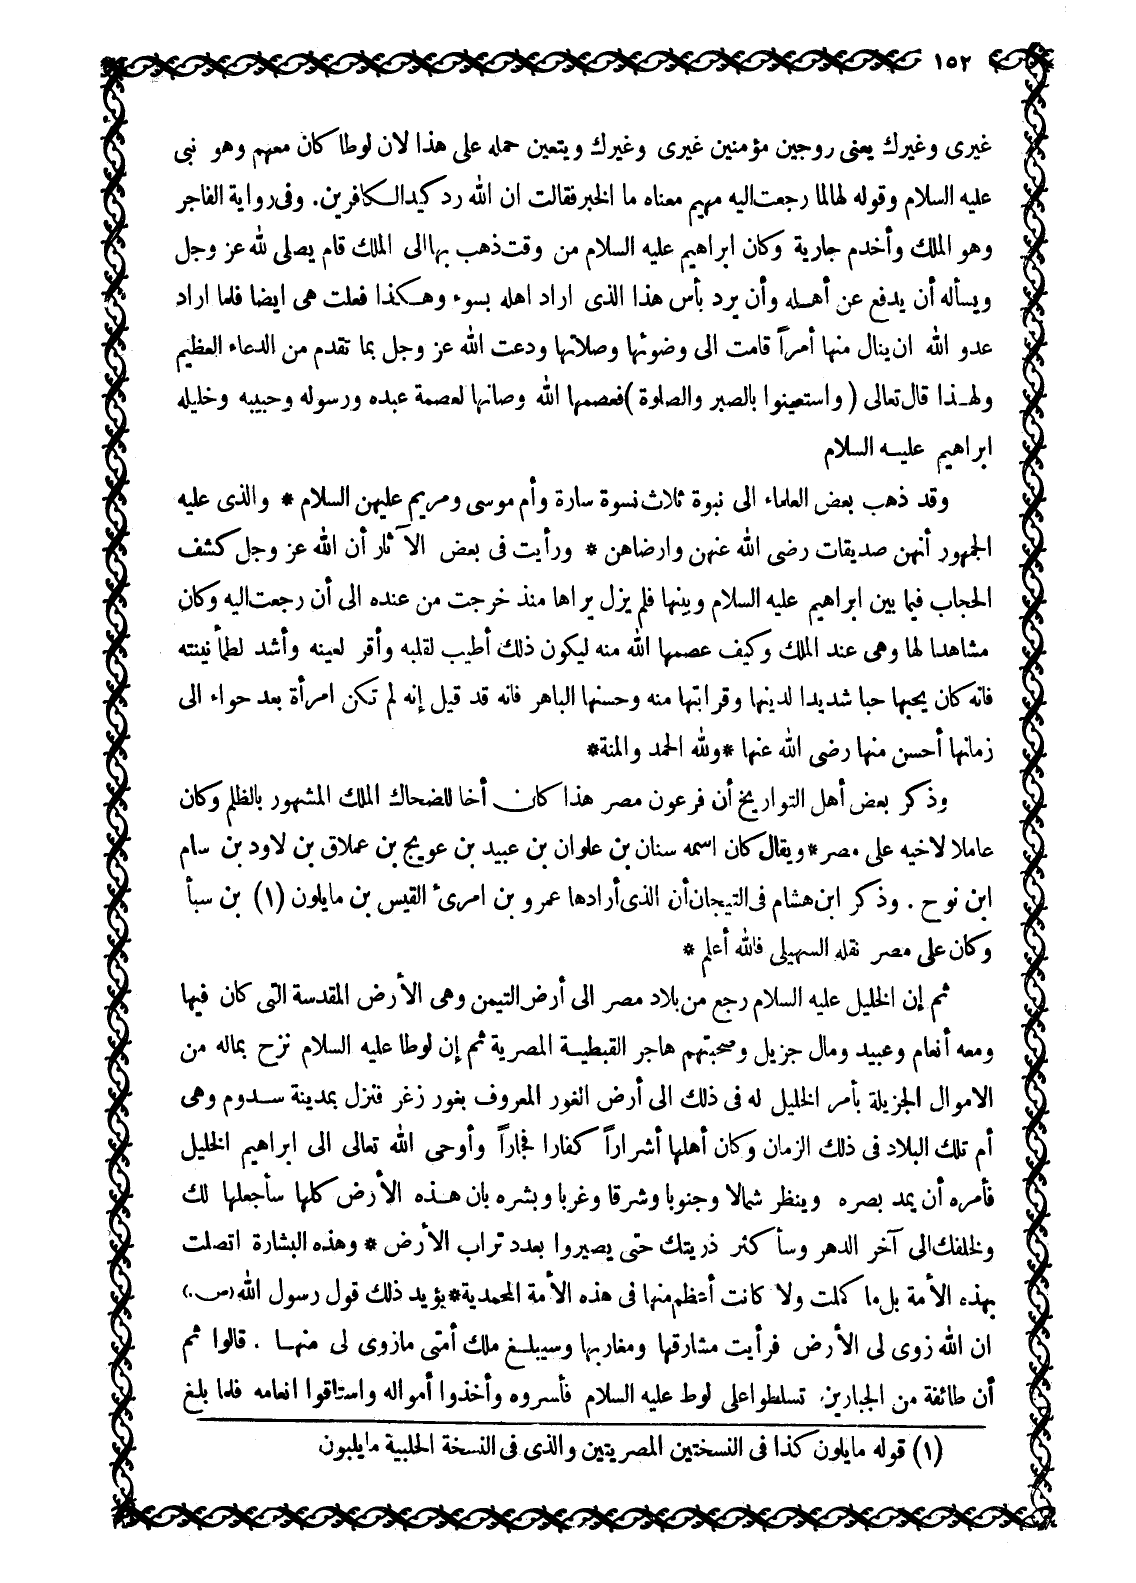 ١٥٢
غيرى وغيرك يعنى زوجين مؤمنين غيرى وغيرك ويتعين حمله على هذا لان لوطا كان معهم وهو نبى
عليه السلام وقوله لها لما رجعت اليه مهيم معناه ما الخبر فقالت ان الله رد كيد الكافرين. وفى رواية الفاجر
وهو الملك وأخدم جارية وكان ابراهيم عليه السلام من وقت ذهب بها الى الملك قام يصلى لله عز وجل
ويسأله أن يدفع عن أهله وأن يرد بأس هذا الذى اراد اهله بسوء وهكذا فعلت هى ايضا فلما اراد
عدو الله ان ينال منها أمراً قامت الى وضوئها وصلاتها ودعت الله عز وجل بما تقدم من الدعاء العظيم
ولهذا قال تعالى ( واستعينوا بالصبر والصلوة ) فعصمها الله وصانها لعصمة عبده ورسوله وحبيبه وخليله
ابراهيم عليه السلام
وقد ذهب بعض العلماء الى نبوة ثلاث نسوة سارة وأم موسى ومريم عليهن السلام * والذى عليه
الجمهور أنهن صديقات رضى الله عنهن وارضاهن * ورأيت فى بعض الآثار أن الله عز وجل كشف
الحجاب فيما بين ابراهيم عليه السلام وبينها فلم يزل يراها منذ خرجت من عنده الى أن رجعت اليه وكان
مشاهدا لها وهى عند الملك وكيف عصمها الله منه ليكون ذلك أطيب لقلبه وأقر لعينه وأشد لطمأنينته
فانه كان يحبها حبا شديدا لدينها وقرابتها منه وحسنها الباهر فانه قد قيل إنه لم تكن امرأة بعد حواء الى
زمانها أحسن منها رضى الله عنها *ولله الحمد والمنة*
وذكر بعض أهل التواريخ أن فرعون مصر هذا كان أخا للضحاك الملك المشهور بالظلم وكان
عاملا لاخيه على مصر*ويقال كان اسمه سنان بن علوان بن عبيد بن عويج بن عملاق بن لاود بن سام
ابن نوح . وذكر ابن هشام فى التيجان أن الذى أرادها عمرو بن امرىء القيس بن مايلون (١) بن سبأ
وكان على مصر نقله السهيلى فالله أعلم *
ثم إن الخليل عليه السلام رجع من بلاد مصر الى أرض التيمن وهى الأرض المقدسة التى كان فيها
ومعه أنعام وعبيد ومال جزيل وصحبتهم هاجر القبطية المصرية ثم إن لوطا عليه السلام نزح بماله من
الاموال الجزيلة بأمر الخليل له فى ذلك الى أرض الغور المعروف بغور زغر فنزل بمدينة سدوم وهى
أم تلك البلاد فى ذلك الزمان وكان أهلها أشراراً كفارا فجاراً وأوحى الله تعالى الى ابراهيم الخليل
فأمره أن يمد بصره وينظر شمالا وجنوبا وشرقا وغربا وبشره بان هذه الأرض كلها سأجعلها لك
ولخلفك الى آخر الدهر وسأكثر ذريتك حتى يصيروا بعدد تراب الأرض * وهذه البشارة اتصلت
بهذه الأمة بل ما كملت ولا كانت أعظم منها فى هذه الأمة المحمدية*يؤيد ذلك قول رسول الله (ص.)
ان الله زوى لى الأرض فرأيت مشارقها ومغاربها وسيبلغ ملك أمتى مازوى لى منها . قالوا ثم
أن طائفة من الجبارين تسلطوا على لوط عليه السلام فأسروه وأخذوا أمواله واستاقوا انعامه فلما بلغ
(١) قوله مايلون كذا فى النسختين المصريتين والذى فى النسخة الحلبية مايلبون